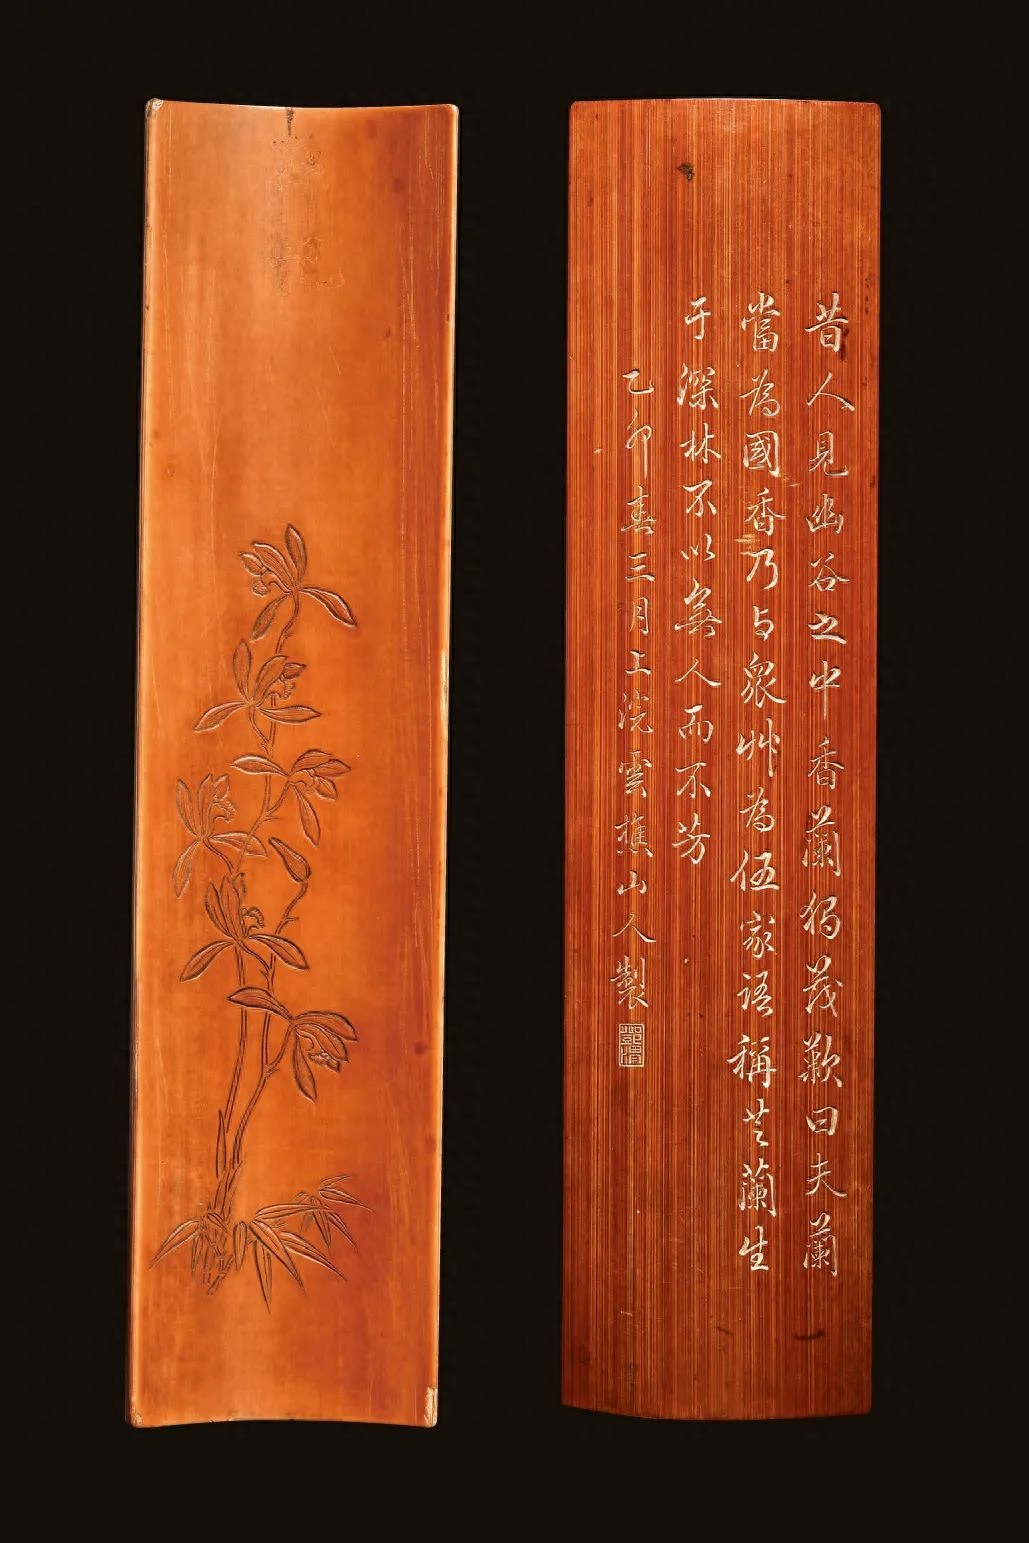 昔人見幽谷之中香蘭獨茂歎曰夫蘭
當為國香乃与衆艸為伍家語稱芝蘭生
于深林不以無人而不芳
乙卯春三月上浣雲樵山人製
鄧渭